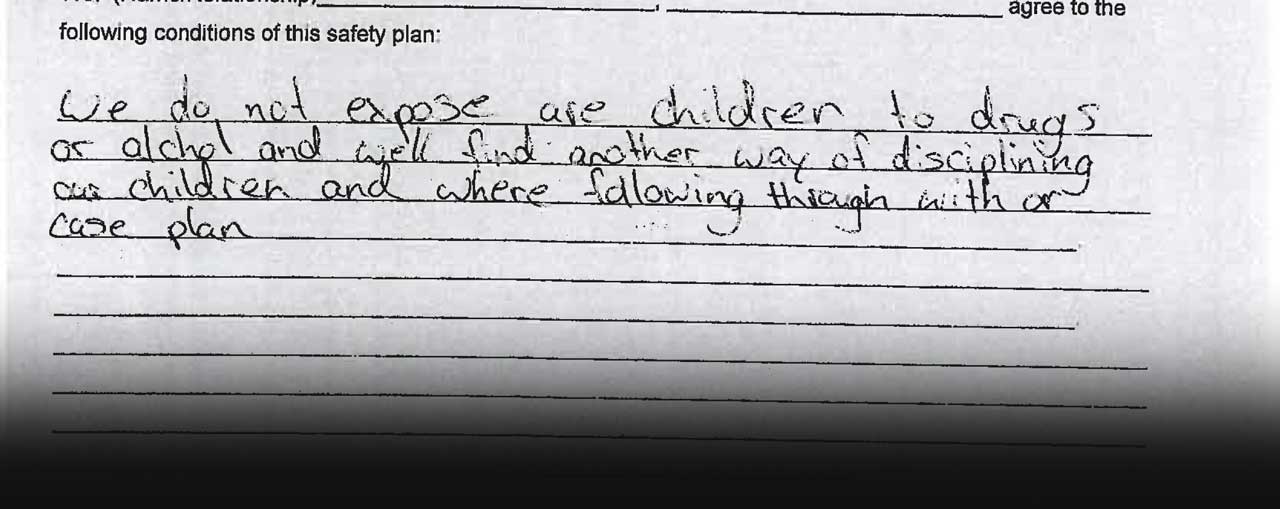 agree to the
following conditions of this safety plan:
We do not expose are children to drugs
or alchol and we'll find another way of disciplining
our children and where following through with or
case plan